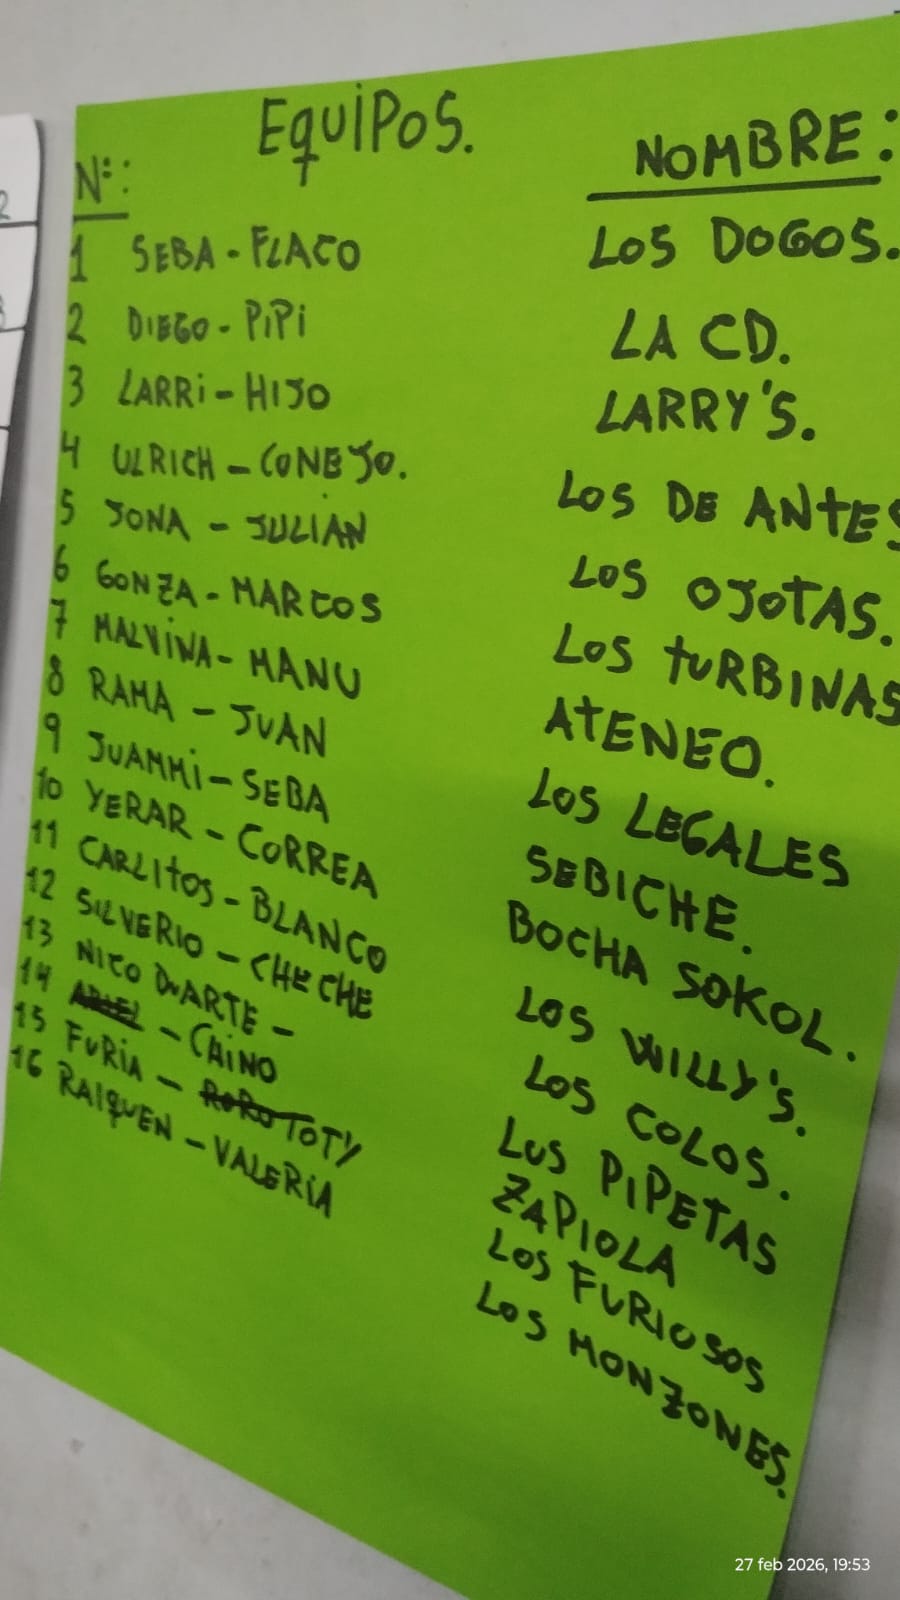 EQUIPOS.
N°:
NOMBRE:
1 SEBA - FLACO LOS DOGOS.
2 DIEGO - PIPI LA CD.
3 LARRI - HIJO LARRY'S.
4 ULRICH - CONEJO. LOS DE ANTES
5 JONA - JULIAN LOS OJOTAS.
6 GONZA - MARCOS LOS TURBINAS
7 MALVINA - MANU ATENEO.
8 RAMA - JUAN LOS LEGALES
9 JUAMMI - SEBA SEBICHE.
10 YERAR - CORREA BOCHA SOKOL.
11 CARLITOS - BLANCO LOS WILLY'S.
12 SILVERIO - CHECHE LOS COLOS.
13 NICO DUARTE - LOS PIPETAS
14 - CHINO ZAPIOLA
15 FURIA - TOTY LOS FURIOSOS
16 RAIQUEN - VALERIA LOS MONZONES.
27 feb 2026, 19:53